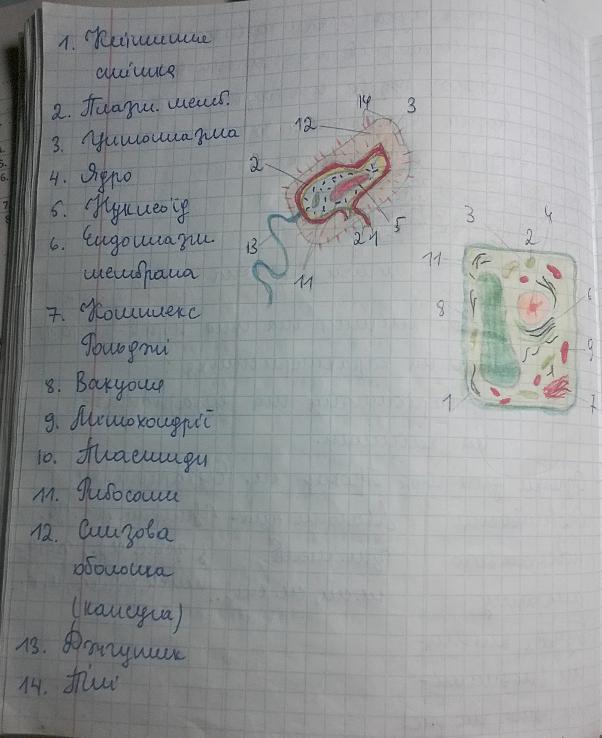 1. Клітинна
стінка
2. Плазм. мемб.
3. Цитоплазма
4. Ядро
5. Нуклеоїд
6. Ендоплазм.
мембрана
7. Комплекс
Гольджі
8. Вакуоля
9. Мітохондрії
10. Пластиди
11. Рибосоми
12. Слизова
оболонка
(капсула)
13. Джгутик
14. Пілі
14 3
12
2
5
2 1
13
11
3 4
2
11
6
8
9
1 7